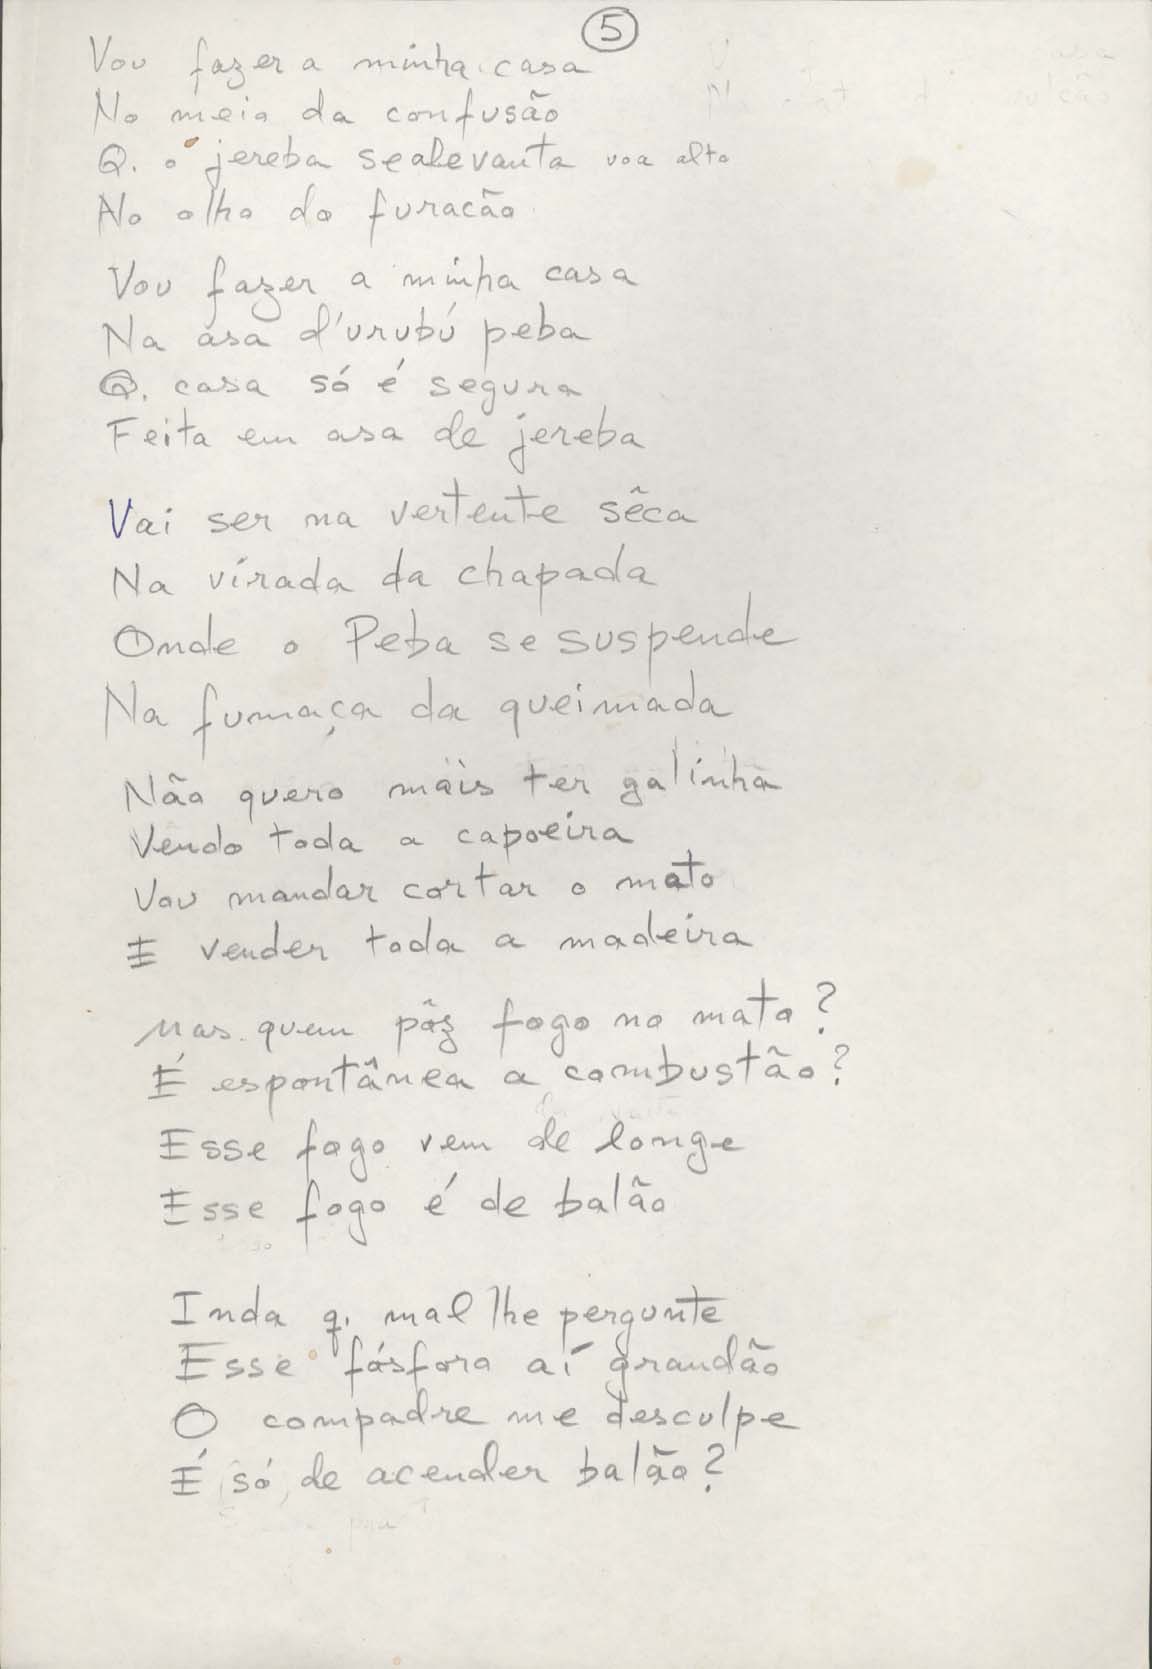 5
Vou fazer a minha casa
No meio da confusão
Q. o jereba sealevanta voa alto
No olho do furacão
Vou fazer a minha casa
Na asa d'urubú peba
Q. casa só é segura
Feita em asa de jereba
Vai ser na vertente sêca
Na virada da chapada
Onde o Peba se suspende
Na fumaça da queimada
Não quero mais ter galinha
Vendo toda a capoeira
Vou mandar cortar o mato
E vender toda a madeira
Mas quem pôz fogo no mato?
É espontânea a combustão?
Esse fogo vem de longe
Esse fogo é de balão
Inda q. mal lhe pergunte
Esse fósforo aí grandão
O compadre me desculpe
É só de acender balão?